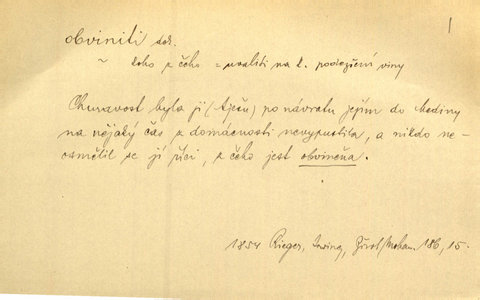 1
obviniti dok.
~ koho z čeho = uvaliti na k. podezření viny
Churavost byla ji (Aješu) po návratu jejím do Mediny
na nějaký čas z domácnosti nevypustila, a nikdo ne-
osmělil se jí říci, z čeho jest obviněna.
1854 Rieger, Irving, Život Moham. 186, 15.